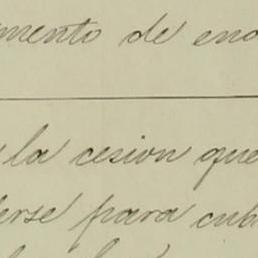 mento de ena
la cesion que
erse para cub